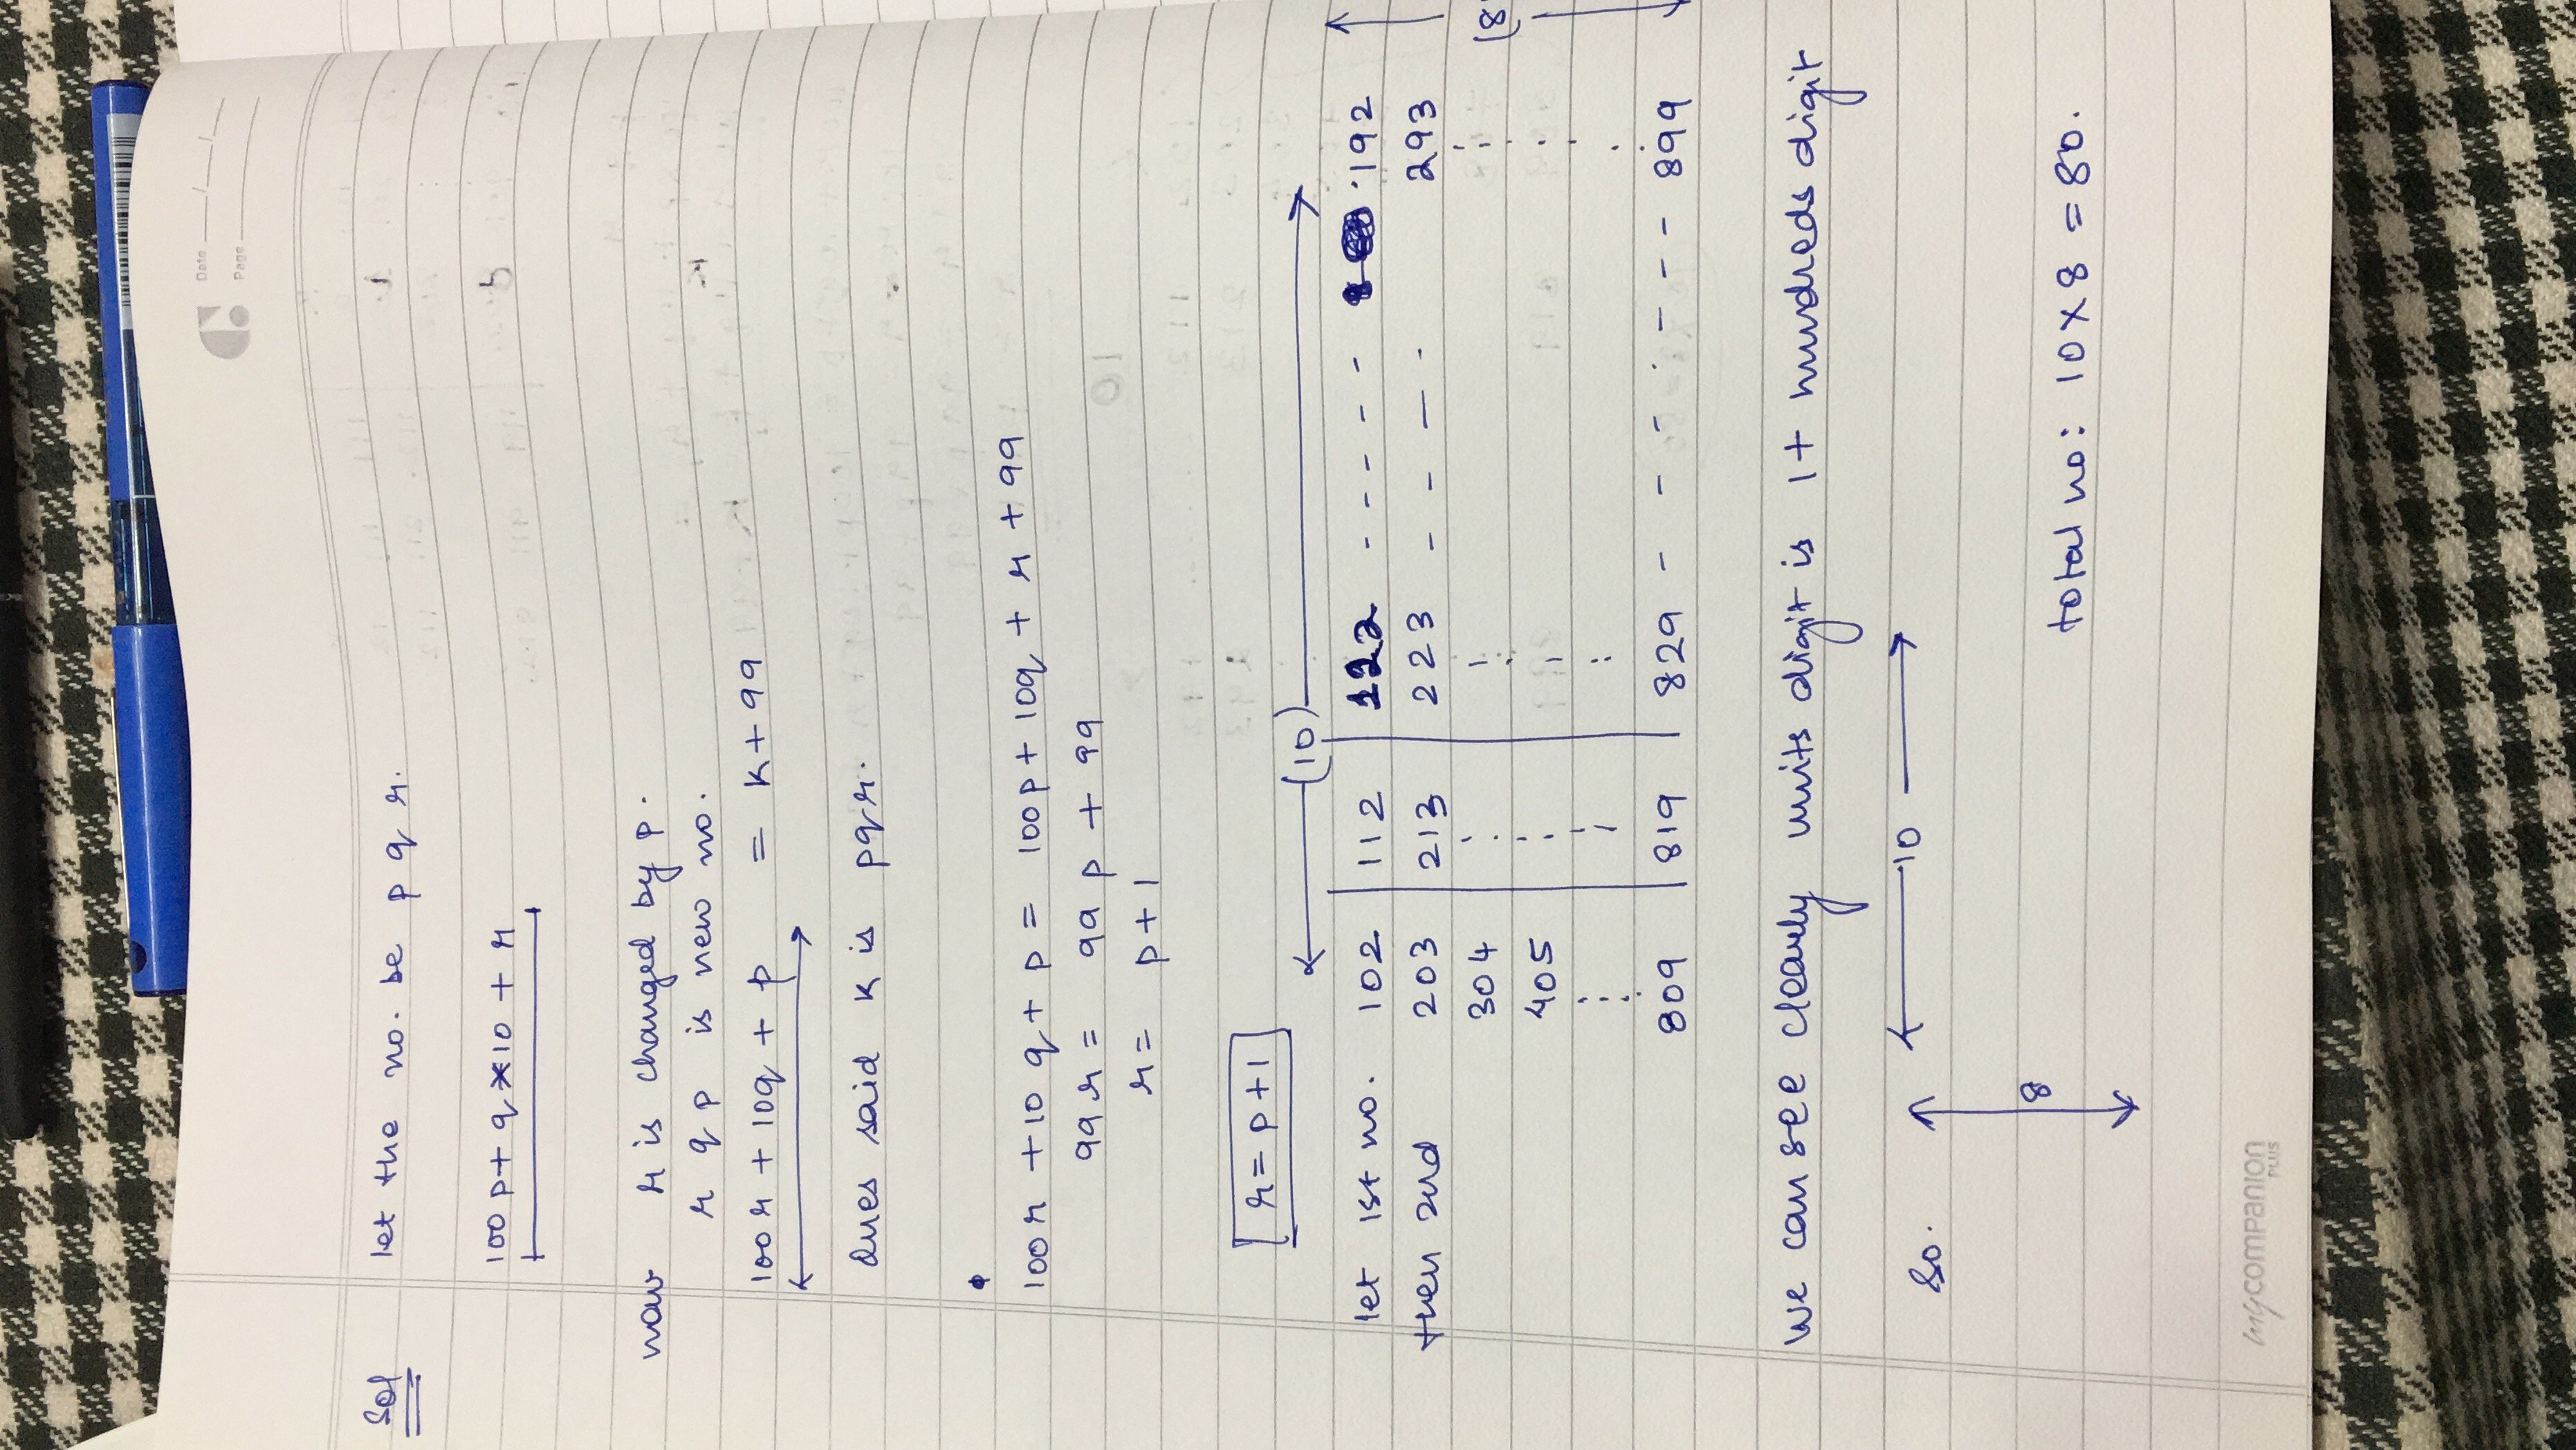 Date
Page
Sol
let the no. be p q r.
100p + q*10 + r
now r is changed by p.
r q p is new no.
100r + 10q + p = K + 99
Ques said K is pqr.
100r + 10q + p = 100p + 10q + r + 99
99r = 99p + 99
r = p + 1
r = p + 1
(10)
let 1st no. 102 112 122 - - - - - - 192
then 2nd 203 213 223 - - - - . 293
304
405
809 819 829 - - - - . - - - 899
(8)
We can see clearly units digit is 1 + hundreds digit
So. 10
8
total no: 10 × 8 = 80.
mycompanion
PLUS